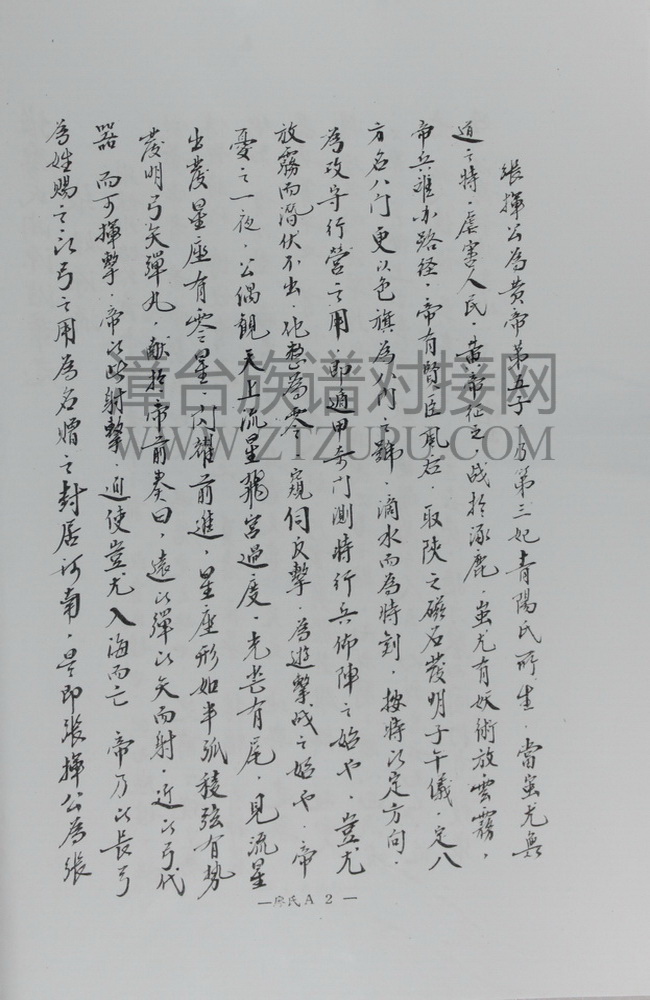 張揮公為黃帝第五子 乃第三妃青陽氏所生．當蚩尤無
道之時．虐害人民．黃帝征之 战於涿鹿．蚩尤有妖術放雲霧，
帝兵難亦路径．帝有賢臣風后．取陕之磁石發明子午儀．定八
方名八门更以色旗為八门之號．滴水而為時刻．按時以定方向．
為攻守行營之用 即遁甲奇门測時行兵佈陣之始也．蚩尤
放霧而潛伏不出 化整為零．窺伺反擊．為遊擊战之始也．帝
憂之一夜．公偶観天上流星 宮過度．光芒有尾．見流星
出發星座有零星．闪耀前進，星座形如半弧 弦有势
發明弓矢彈丸．献於帝前奏曰，遠以彈以矢而射．近以弓代
器 而可揮擊．帝以此射擊．迫使蚩尤入海而亡 帝乃以長弓
為姓賜之以弓之用為名赠之封居河南．是即張揮公為張
—廖氏A 2—
章台族谱对接网
WWW.ZTZUPU.COM